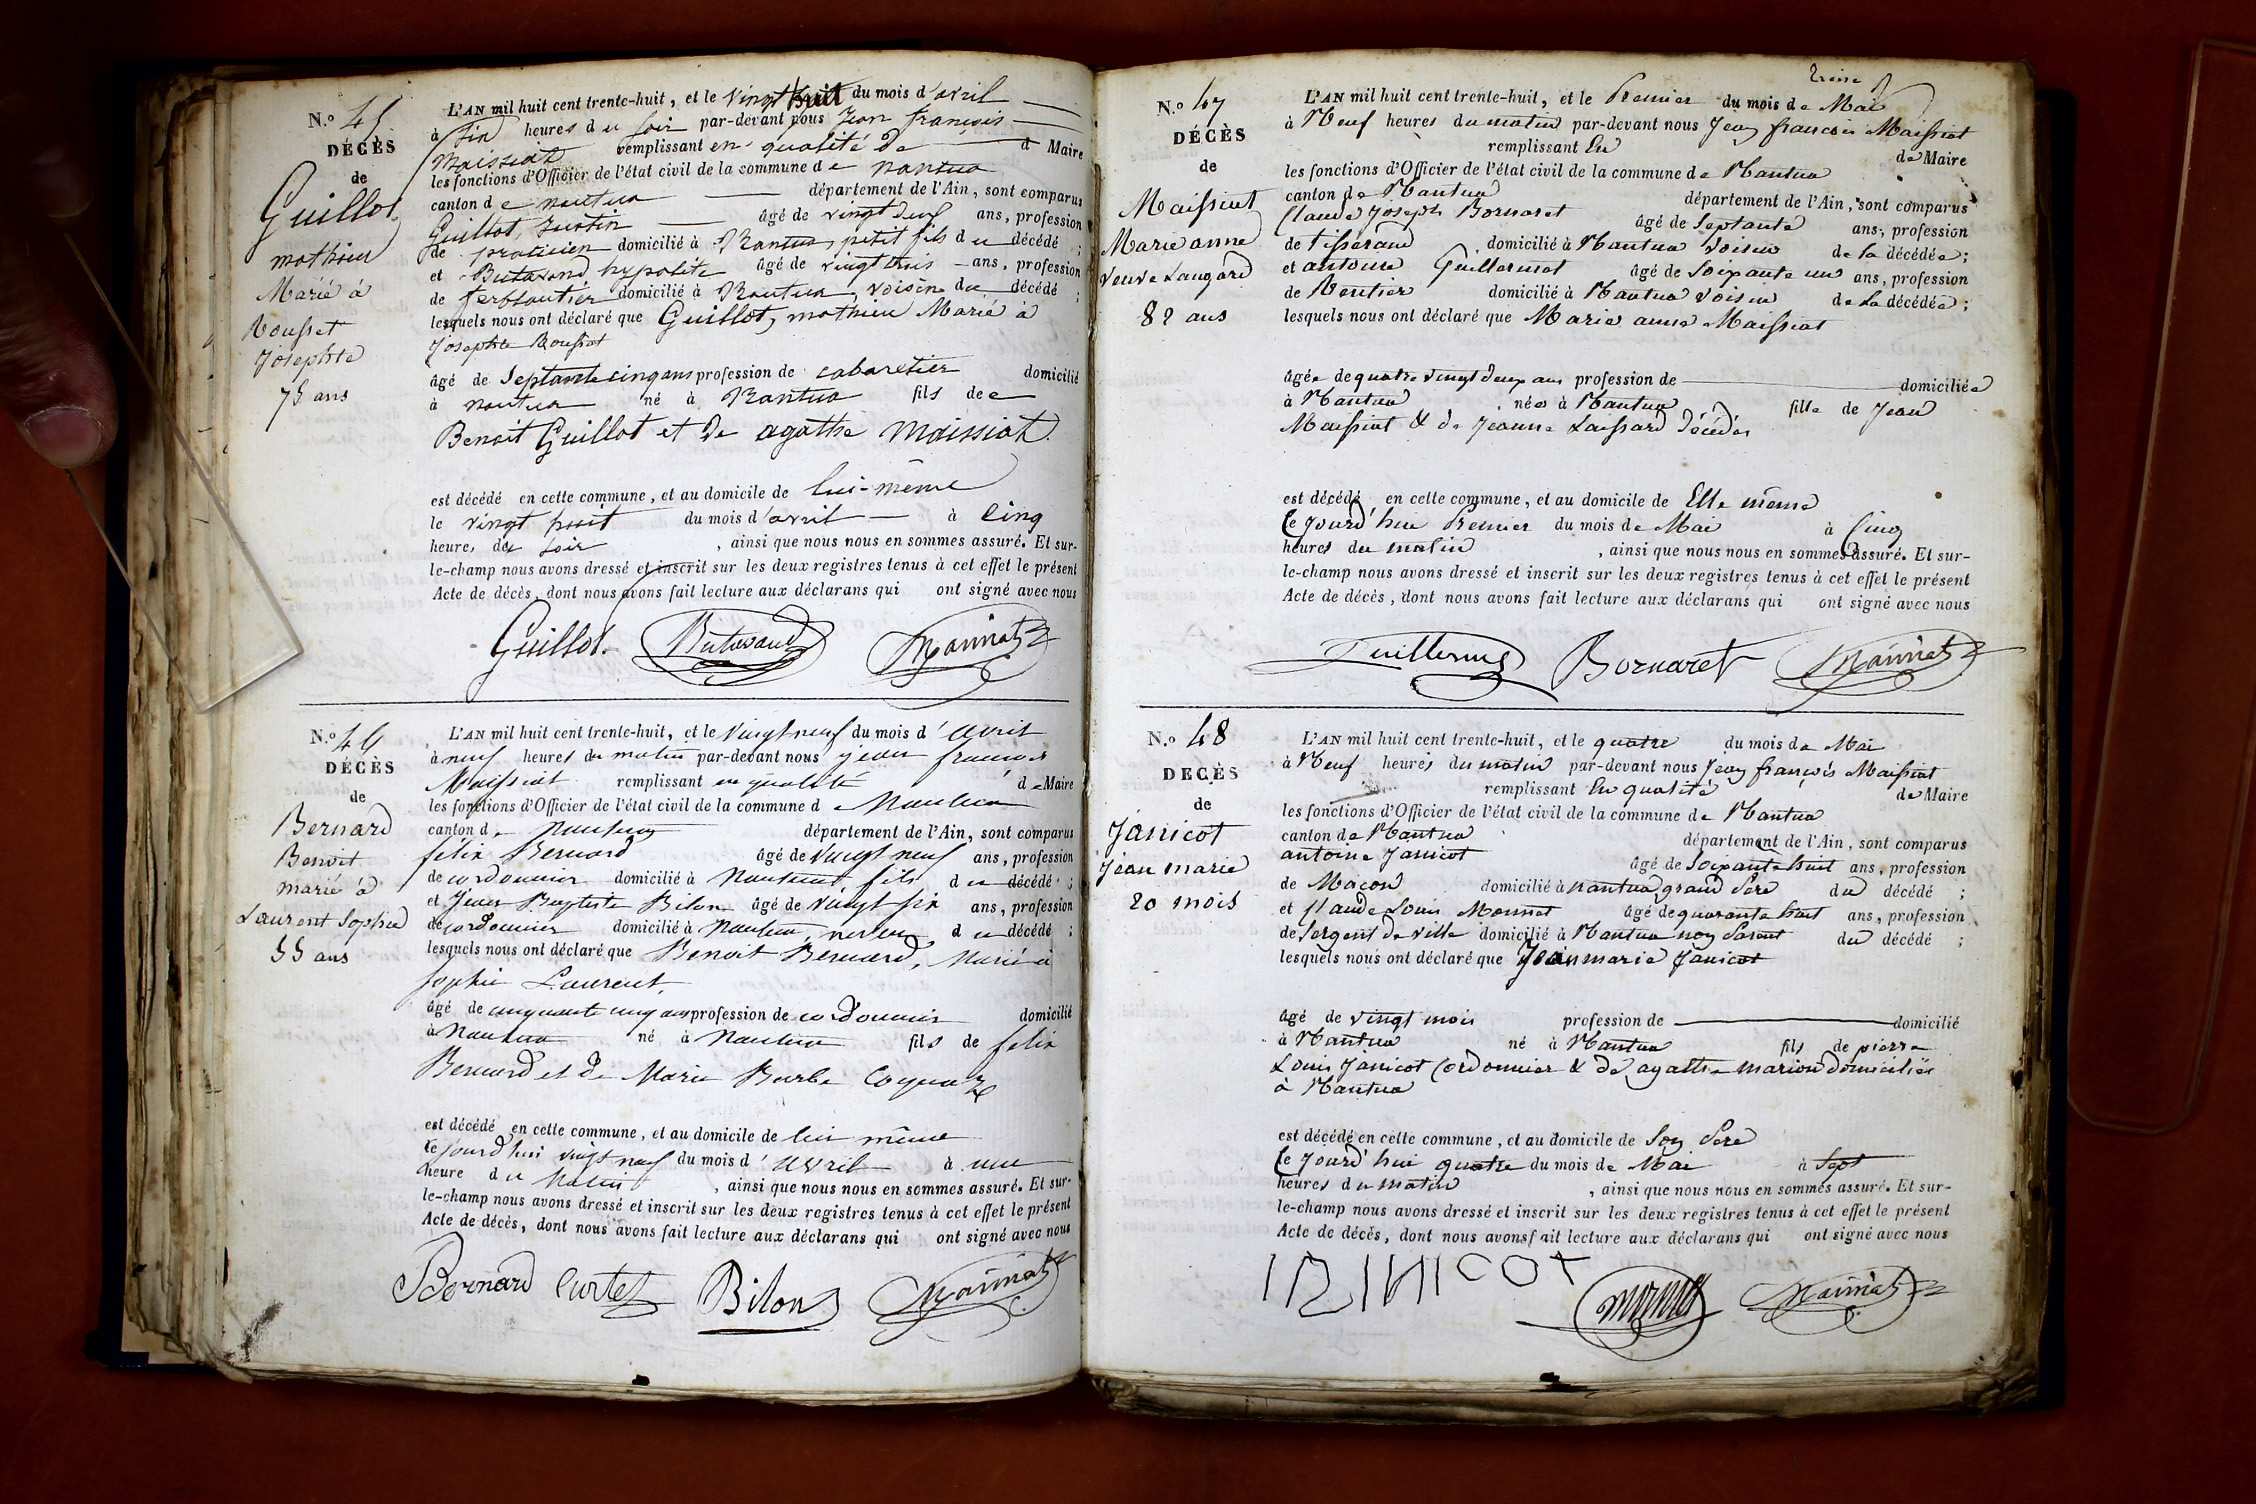 N.o 45
DÉCÈS
de
Guillot
mathieu
Marié à
Rousset
Josephte
75 ans
L'AN mil huit cent trente-huit, et le vingt huit du mois d'avril
à six heures du soir par-devant nous Jean françois
Maissiat remplissant en qualité de d Maire
les fonctions d'Officier de l'état civil de la commune de nantua
canton de nantua département de l'Ain, sont comparus
Guillot, Justin âgé de vingt deux ans, profession
de praticien domicilié à Nantua, petit fils du décédé ;
et Butavand hypolite âgé de vingt trois ans, profession
de ferblantier domicilié à Nantua, voisin du décédé ;
lesquels nous ont déclaré que Guillot, mathieu Marié à
Josephte Rousset
âgé de Septante cinq ans profession de cabaretier domicilié
à nantua né à Nantua fils de
Benoit Guillot et de agathe Maissiat
est décédé en cette commune, et au domicile de lui-même
le vingt huit du mois d'avril à cinq
heures du soir, ainsi que nous nous en sommes assuré. Et sur-
le-champ nous avons dressé et inscrit sur les deux registres tenus à cet effet le présent
Acte de décès, dont nous avons fait lecture aux déclarans qui ont signé avec nous
Guillot Butavand Maissiat
N.o 46
DÉCÈS
de
Bernard
Benoit
marié à
Laurent Sophie
55 ans
L'AN mil huit cent trente-huit, et le vingt neuf du mois d'avril
à neuf heures du matin par-devant nous jean françois
Maissiat remplissant en qualité de Maire
les fonctions d'Officier de l'état civil de la commune de Nantua
canton de Nantua département de l'Ain, sont comparus
felix Bernard âgé de vingt neuf ans, profession
de cordonnier domicilié à Nantua, fils du décédé ;
et Jean Baptiste Bilon âgé de vingt six ans, profession
de cordonnier domicilié à Nantua, neveu du décédé ;
lesquels nous ont déclaré que Benoit Bernard, Marié à
Sophie Laurent,
âgé de cinquante cinq ans profession de cordonnier domicilié
à Nantua né à Nantua fils de felix
Bernard et de Marie Barbe
est décédé en cette commune, et au domicile de lui même
Ce jourd'hui vingt neuf du mois d'avril à une
heure du Matin, ainsi que nous nous en sommes assuré. Et sur-
le-champ nous avons dressé et inscrit sur les deux registres tenus à cet effet le présent
Acte de décès, dont nous avons fait lecture aux déclarans qui ont signé avec nous
Bernard Curtet Bilon Maissiat
treize
N.o 47
DÉCÈS
de
Maissiat
Marie anne
veuve Laugard
82 ans
L'AN mil huit cent trente-huit, et le Premier du mois de Mai
à Neuf heures du matin par-devant nous Jean françois Maissiat
remplissant En de Maire
les fonctions d'Officier de l'état civil de la commune de Nantua
canton de Nantua département de l'Ain, sont comparus
Claude Joseph Bornaret âgé de Septante ans, profession
de tisserand domicilié à Nantua voisin de la décédée ;
et antoine Guillermet âgé de Soixante un ans, profession
de Rentier domicilié à Nantua voisin de la décédée ;
lesquels nous ont déclaré que Marie anne Maissiat
âgée de quatre vingt deux ans profession de domiciliée
à Nantua née à Nantua fille de Jean
Maissiat & de Jeanne Laissard décédés
est décédé en cette commune, et au domicile de Elle même
Ce Jourd'hui Premier du mois de Mai à Cinq
heures du matin, ainsi que nous nous en sommes assuré. Et sur-
le-champ nous avons dressé et inscrit sur les deux registres tenus à cet effet le présent
Acte de décès, dont nous avons fait lecture aux déclarans qui ont signé avec nous
Bornaret Maissiat
N.o 48
DÉCÈS
de
Janicot
Jean marie
20 mois
L'AN mil huit cent trente-huit, et le quatre du mois de Mai
à Neuf heures du matin par-devant nous Jean françois Maissiat
remplissant En qualité de Maire
les fonctions d'Officier de l'état civil de la commune de Nantua
canton de Nantua département de l'Ain, sont comparus
antoine Janicot âgé de Soixante huit ans, profession
de Maçon domicilié à nantua grand Père du décédé ;
et Claude Louis Monnet âgé de quarante huit ans, profession
de Sergent de ville domicilié à Nantua non Parent du décédé ;
lesquels nous ont déclaré que Jean marie Janicot
âgé de vingt mois profession de domicilié
à Nantua né à Nantua fils de pierre
Louis Janicot Cordonnier & de agathe marion domiciliés
à Nantua
est décédé en cette commune, et au domicile de Son Père
Ce Jourd'hui quatre du mois de Mai à Sept
heures du matin, ainsi que nous nous en sommes assuré. Et sur-
le-champ nous avons dressé et inscrit sur les deux registres tenus à cet effet le présent
Acte de décès, dont nous avons fait lecture aux déclarans qui ont signé avec nous
Maissiat